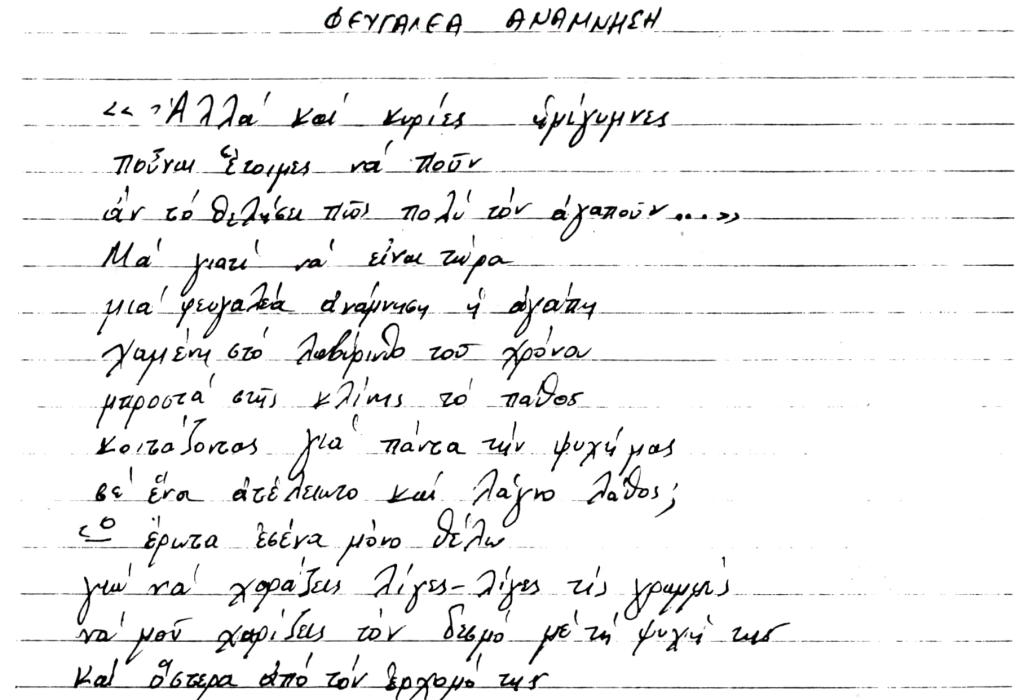 ΦΕΥΓΑΛΕΑ ΑΝΑΜΝΗΣΗ
<< Ἀλλά καί κυρίες ἡμίγυμνες
ποὖναι ἕτοιμες νά ποῦν
ἄν τό θελήσει πῶς πολύ τόν ἀγαποῦν...»
Μά γιατί νά εἶναι τώρα
μιά φευγαλέα ἀνάμνηση ἡ ἀγάπη
χαμένη στό λαβύρινθο τοῦ χρόνου
μπροστά στῆς κλίνης τό πάθος
κοιτάζοντας γιά πάντα τήν ψυχή μας
σέ ἕνα ἀτέλειωτο καί λάγνο λάθος;
Ὦ ἔρωτα ἐσένα μόνο θέλω
γιά νά χαράζεις λίγες-λίγες τίς γραμμές
νά μοῦ χαρίζεις τόν δεσμό μέ τή ψυχή της
καί ὕστερα ἀπό τόν ἐρχομό της